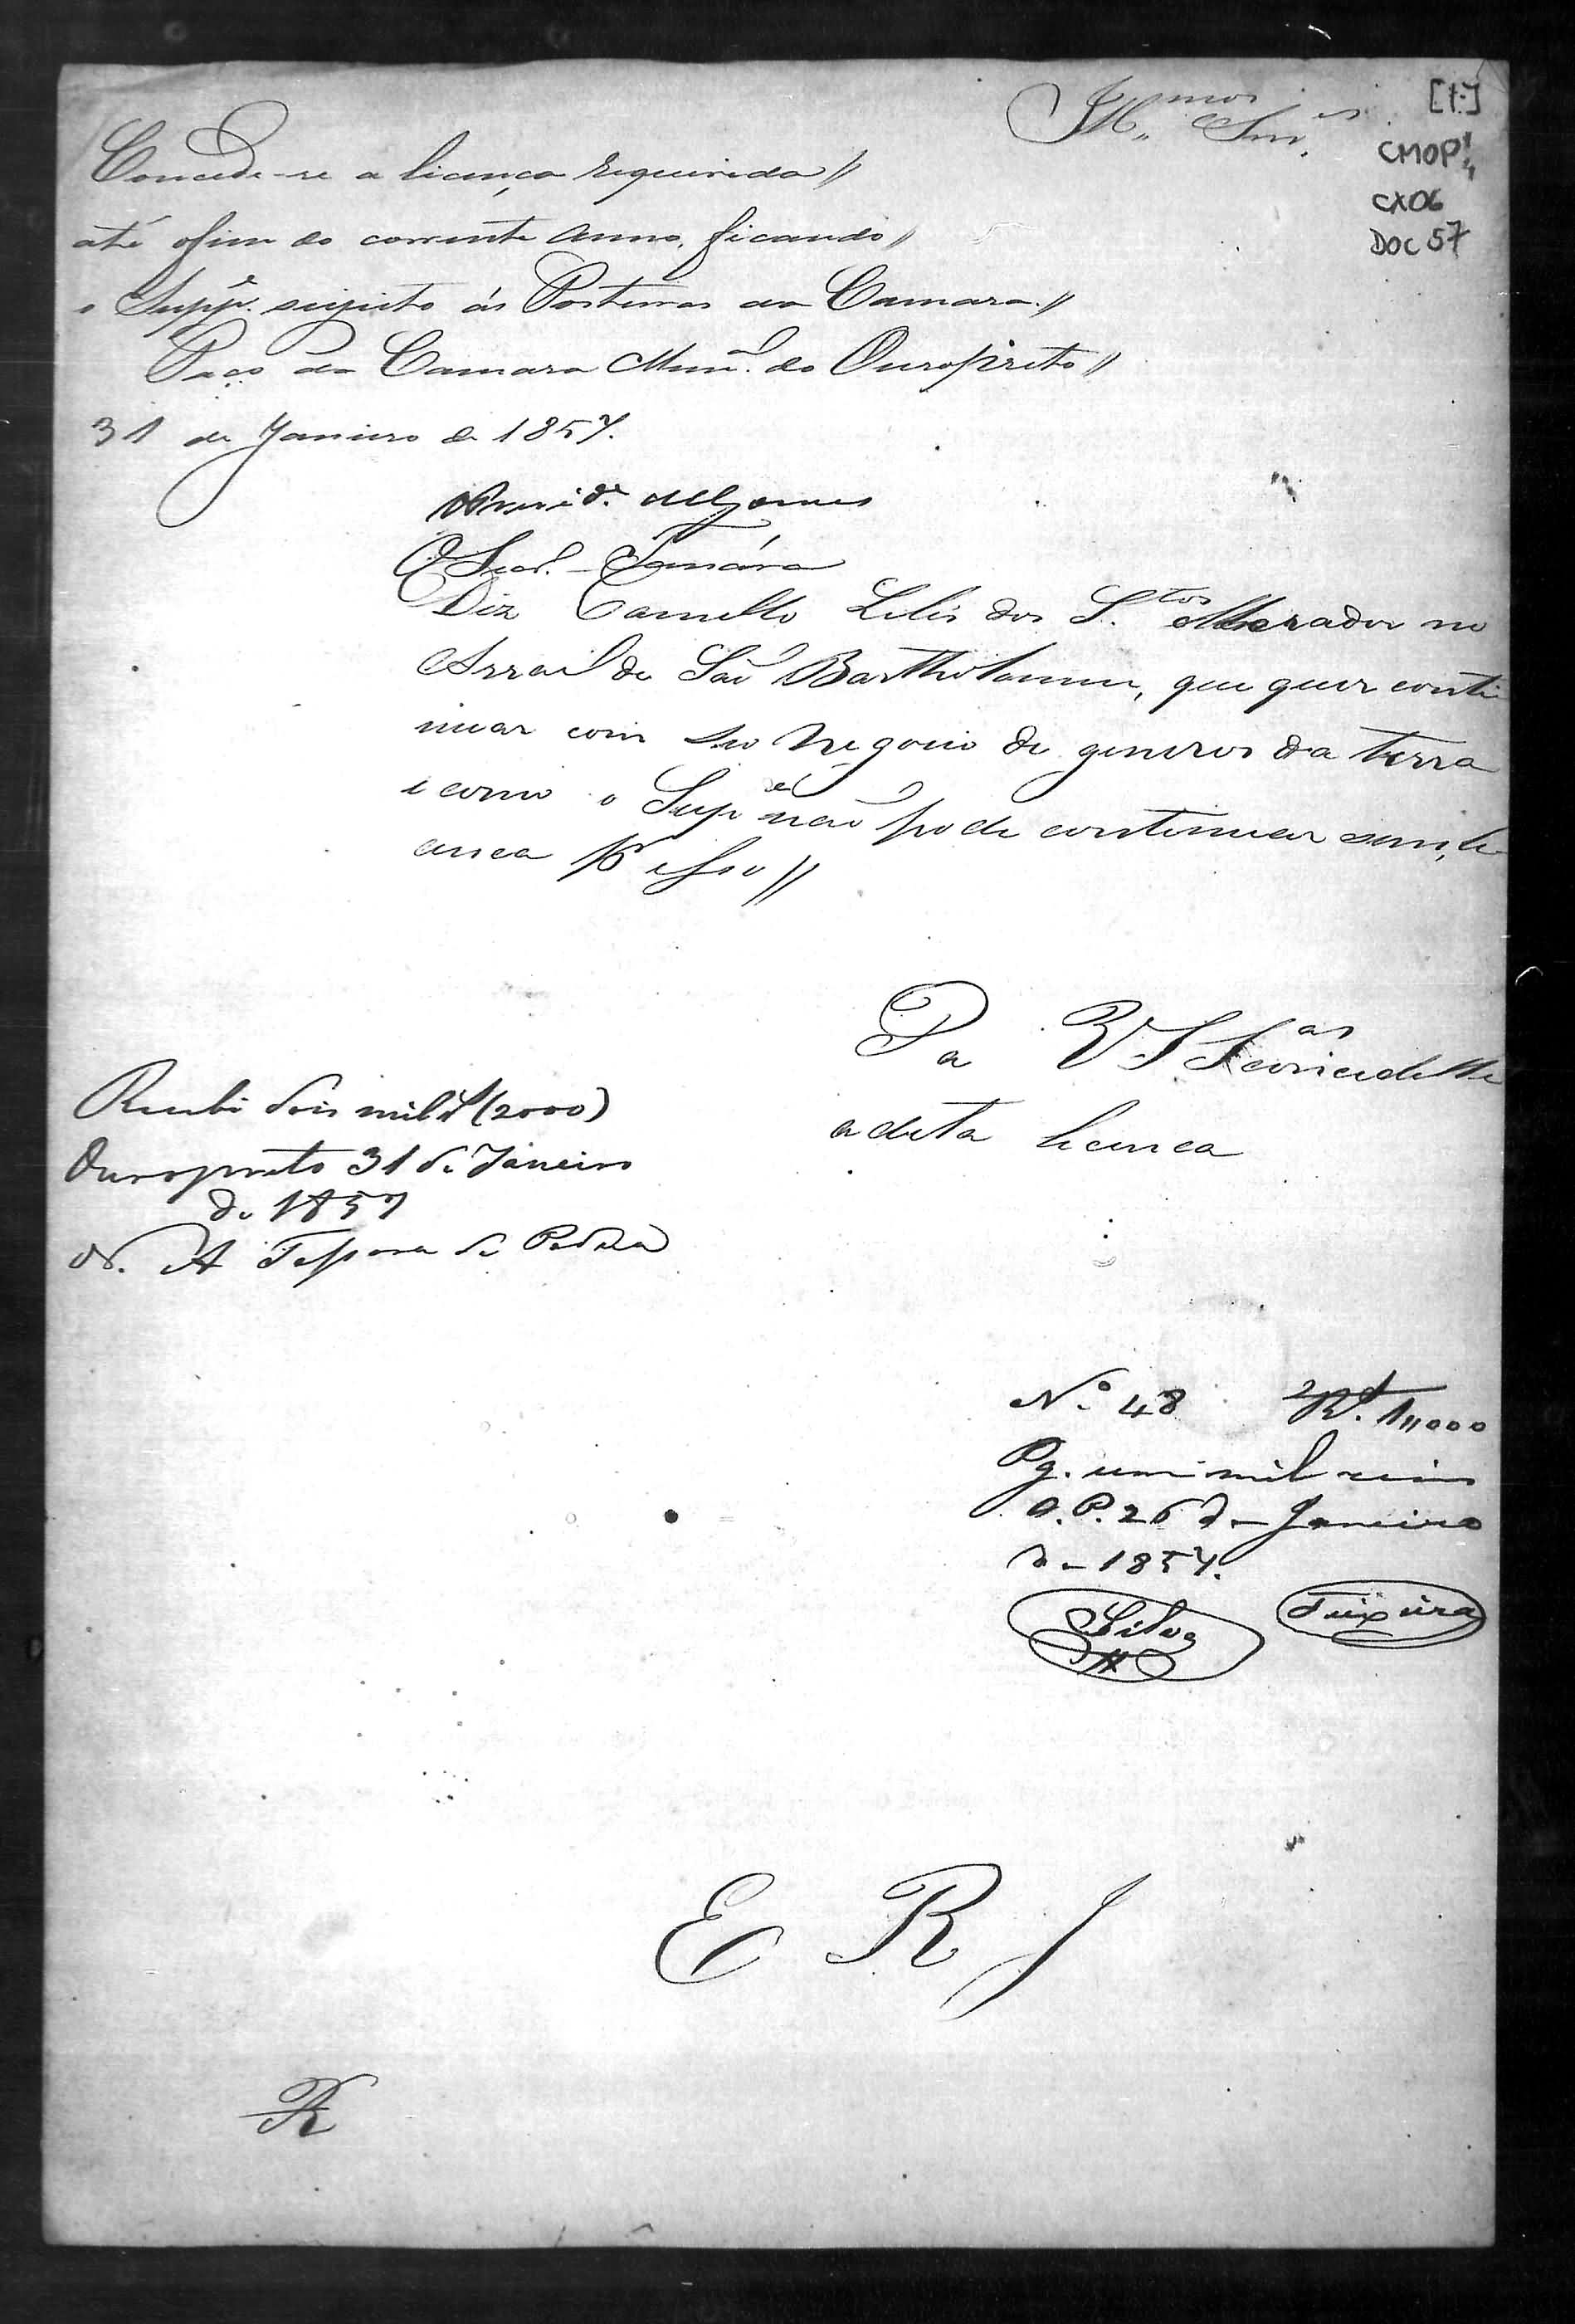 Ill.mos Snr.es
[1.]
CMOP
CX06
DOC 57
Concede-se a licença requerida //
até ofim do corrente anno, ficando //
o Supp.e sugeito ás Posturas da Camara. //
Paço da Camara Mun.al do Ouropreto //
31 de Janeiro de 1857.
Gomes
O Secr.
Diz Camello Lelis dos S.tos Morador no
Arraial de São Bartholameu, que quer conti
nuar com seu negocio de generos da terra
e como o Sup.e não pode continuar sem, li
anca p.a isso //
P a V S S.as concede lhe
a dita licenca
Recebi dois mil rs (2000)
Ouropreto 31 de Janeiro
de 1857
N.o 48 Rs. 1,,000
Pg. um mil reis
O. P. 26 de Janeiro
de 1857.
Silva Teixeira
E R J